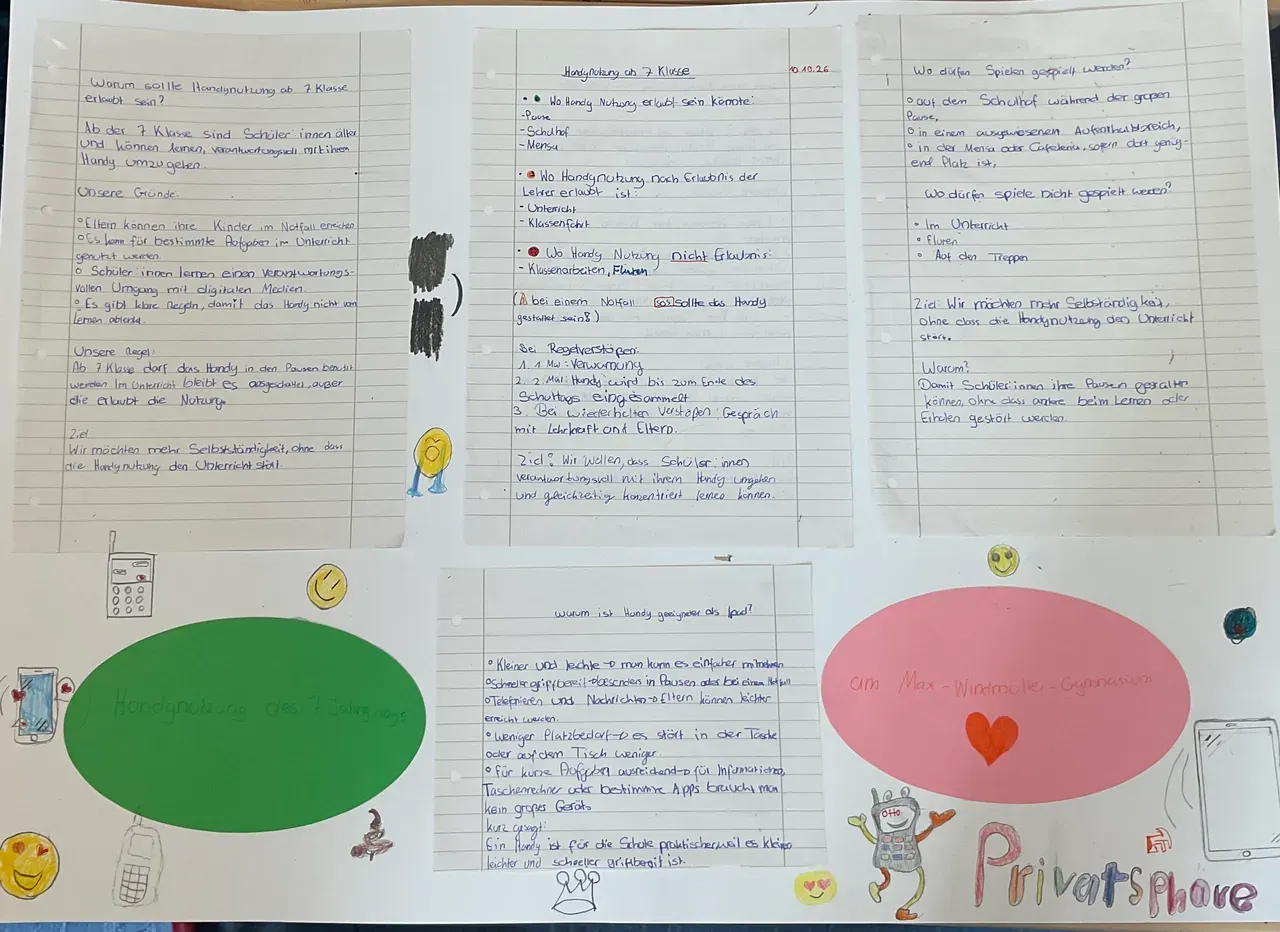 Warum sollte Handynutzung ab 7 Klasse
erlaubt sein?
Ab der 7 Klasse sind Schüler innen älter
und können lernen, verantwortungsvoll mit ihrem
Handy umzugehen.
Unsere Gründe:
°Eltern können ihre Kinder im Notfall erreichen
°Es kann für bestimmte Aufgaben im Unterricht
genutzt werden
° Schüler innen lernen einen verantwortungs-
vollen Umgang mit digitalen Medien.
° Es gibt klare Regeln, damit das Handy nicht vom
lernen ablenkt.
Unsere Regel:
Ab 7 Klasse darf das Handy in den Pausen benutzt
werden Im Unterricht bleibt es ausgeschaltet, außer
die erlaubt die Nutzung.
Ziel
Wir möchten mehr Selbstständigkeit, ohne dass
die Handynutzung den Unterricht stört.
Handynutzung ab 7 Klasse
10.10.26
• Wo Handy Nutzung erlaubt sein könnte:
-Pause
-Schulhof
-Mensa
• Wo Handynutzung nach Erlaubnis der
Lehrer erlaubt ist:
- Unterricht
- Klassenfahrt
• Wo Handy Nutzung nicht Erlaubnis:
- Klassenarbeiten, Fluren
( bei einem Notfall SOS sollte das Handy
gestattet sein!)
Bei Regelverstößen:
1. 1 Mal: Verwarnung
2. 2 Mal: Handy wird bis zum Ende des
Schultags eingesammelt
3. Bei wiederholten Verstößen: Gespräch
mit Lehrkraft und Eltern.
Ziel: Wir wollen, dass Schüler:innen
verantwortungsvoll mit ihrem Handy umgehen
und gleichzeitig konzentriert lernen können.
Wo dürfen Spielen gespielt werden?
° auf dem Schulhof während der großen
Pause,
° in einem ausgewiesenen Aufenthaltsbereich,
° in der Mensa oder Cafeteria, sofern dort genüg-
end Platz ist,
Wo dürfen spiele nicht gespielt werden?
• Im Unterricht
• Fluren
• Auf den Treppen
Ziel: Wir möchten mehr Selbständigkeit,
ohne dass die Handynutzung den Unterricht
stört.
Warum?
Damit Schüler:innen ihre Pausen gestalten
können, ohne dass andere beim Lernen oder
Erholen gestört werden.
Warum ist Handy geeigneter als Ipad?
° Kleiner und leichte → man kann es einfacher mitnehmen
°Schneller griffbereit → besonders in Pausen oder bei einem Notfall
°Telefonieren und Nachrichten → Eltern können leichter
erreicht werden.
° Weniger Platzbedarf → es stört in der Tasche
oder auf dem Tisch weniger.
° Für kurze Aufgaben ausreichend → für Informationen,
Taschenrechner oder bestimmte Apps braucht man
kein großes Gerät.
kurz gesagt:
Ein Handy ist für die Schule praktischer weil es kleiner
leichter und schneller griffbereit ist.
Handynutzung des 7 Jahrgangs
am Max-Windmüller-Gymnasium
OTTO
Privatsphäre